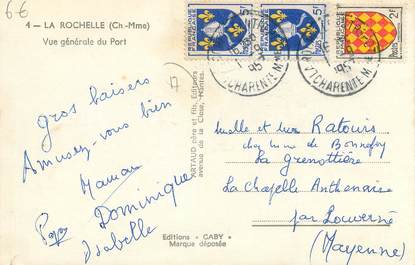 6€
4 - LA ROCHELLE (Ch.-Mme)
Vue générale du Port
17
Gros baisers
Amusez-vous bien
Maman
Papa Dominique
Isabelle
ARTAUD père et fils, Editeurs
avenue de la Close, Nantes.
Editions "GABY"
Marque déposée
5F
5F
2F
CHARENTE Mme
CHARENTE Mme
et Ratouis
chez Mme de Bonnefoy
La Grenottière
La Chapelle Anthenaise
par Louverné
(Mayenne)